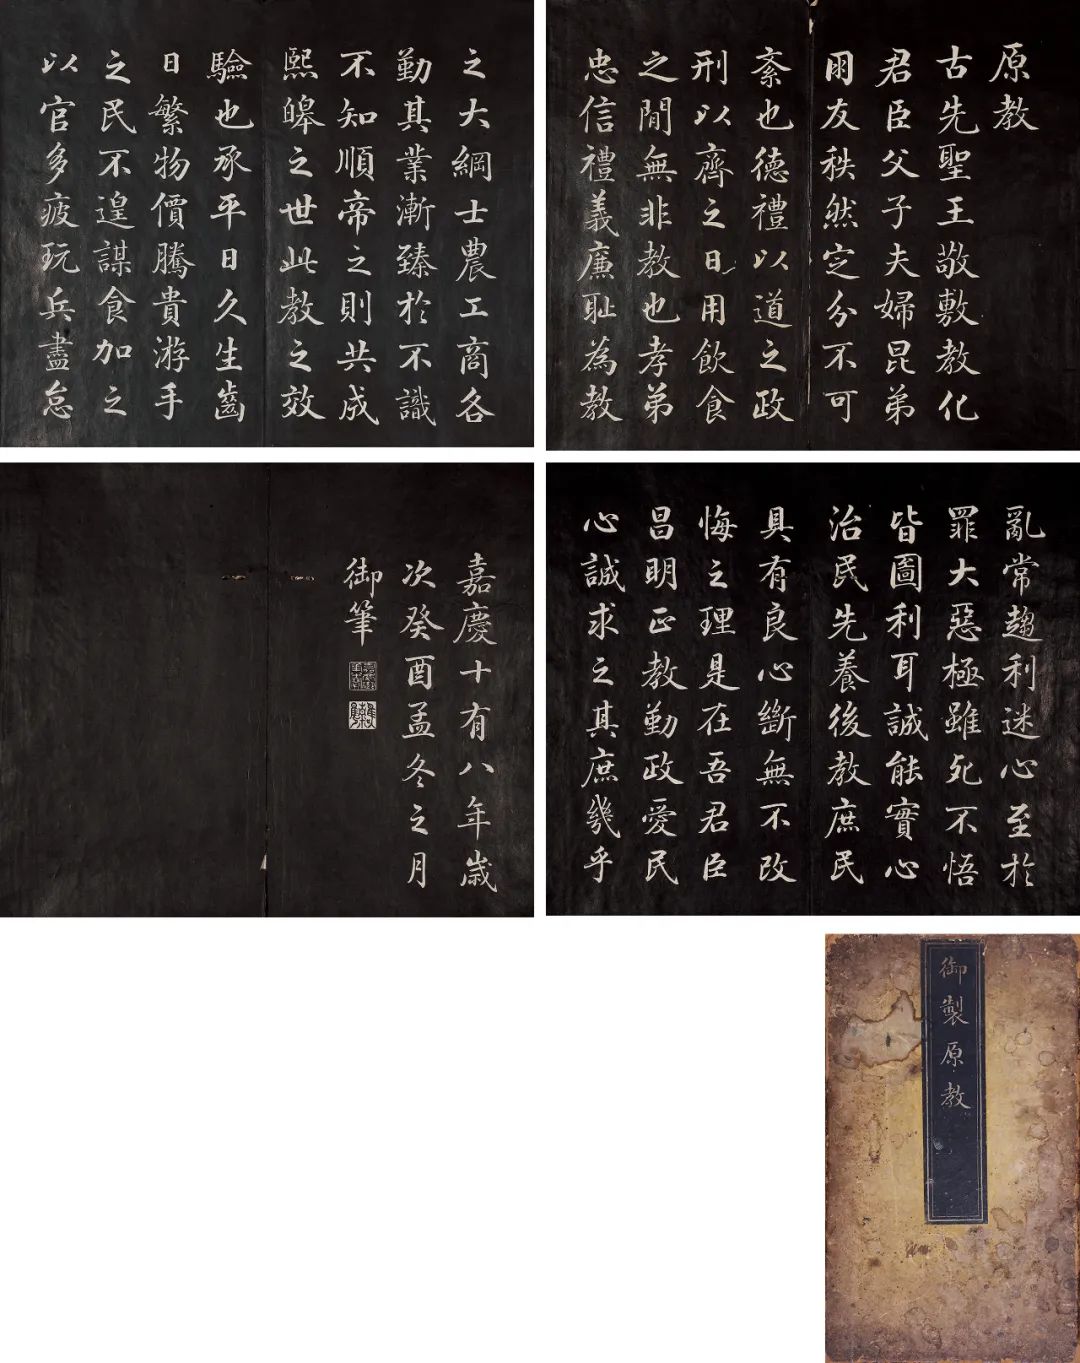 原教
古先聖王敬敷教化
君臣父子夫婦昆弟
朋友秩然定分不可
紊也德禮以道之政
刑以齊之日用飲食
之間無非教也孝弟
忠信禮義廉恥為教
之大綱士農工商各
勤其業漸臻於不識
不知順帝之則共成
熙皞之世此教之效
驗也承平日久生齒
日繁物價騰貴游手
之民不遑謀食加之
以官多疲玩兵盡怠
亂常趨利迷心至於
罪大惡極雖死不悟
皆圖利耳誠能實心
治民先養後教庶民
具有良心斷無不改
悔之理是在吾君臣
昌明正教勤政愛民
心誠求之其庶幾乎
嘉慶十有八年歲
次癸酉孟冬之月
御筆
御製原教